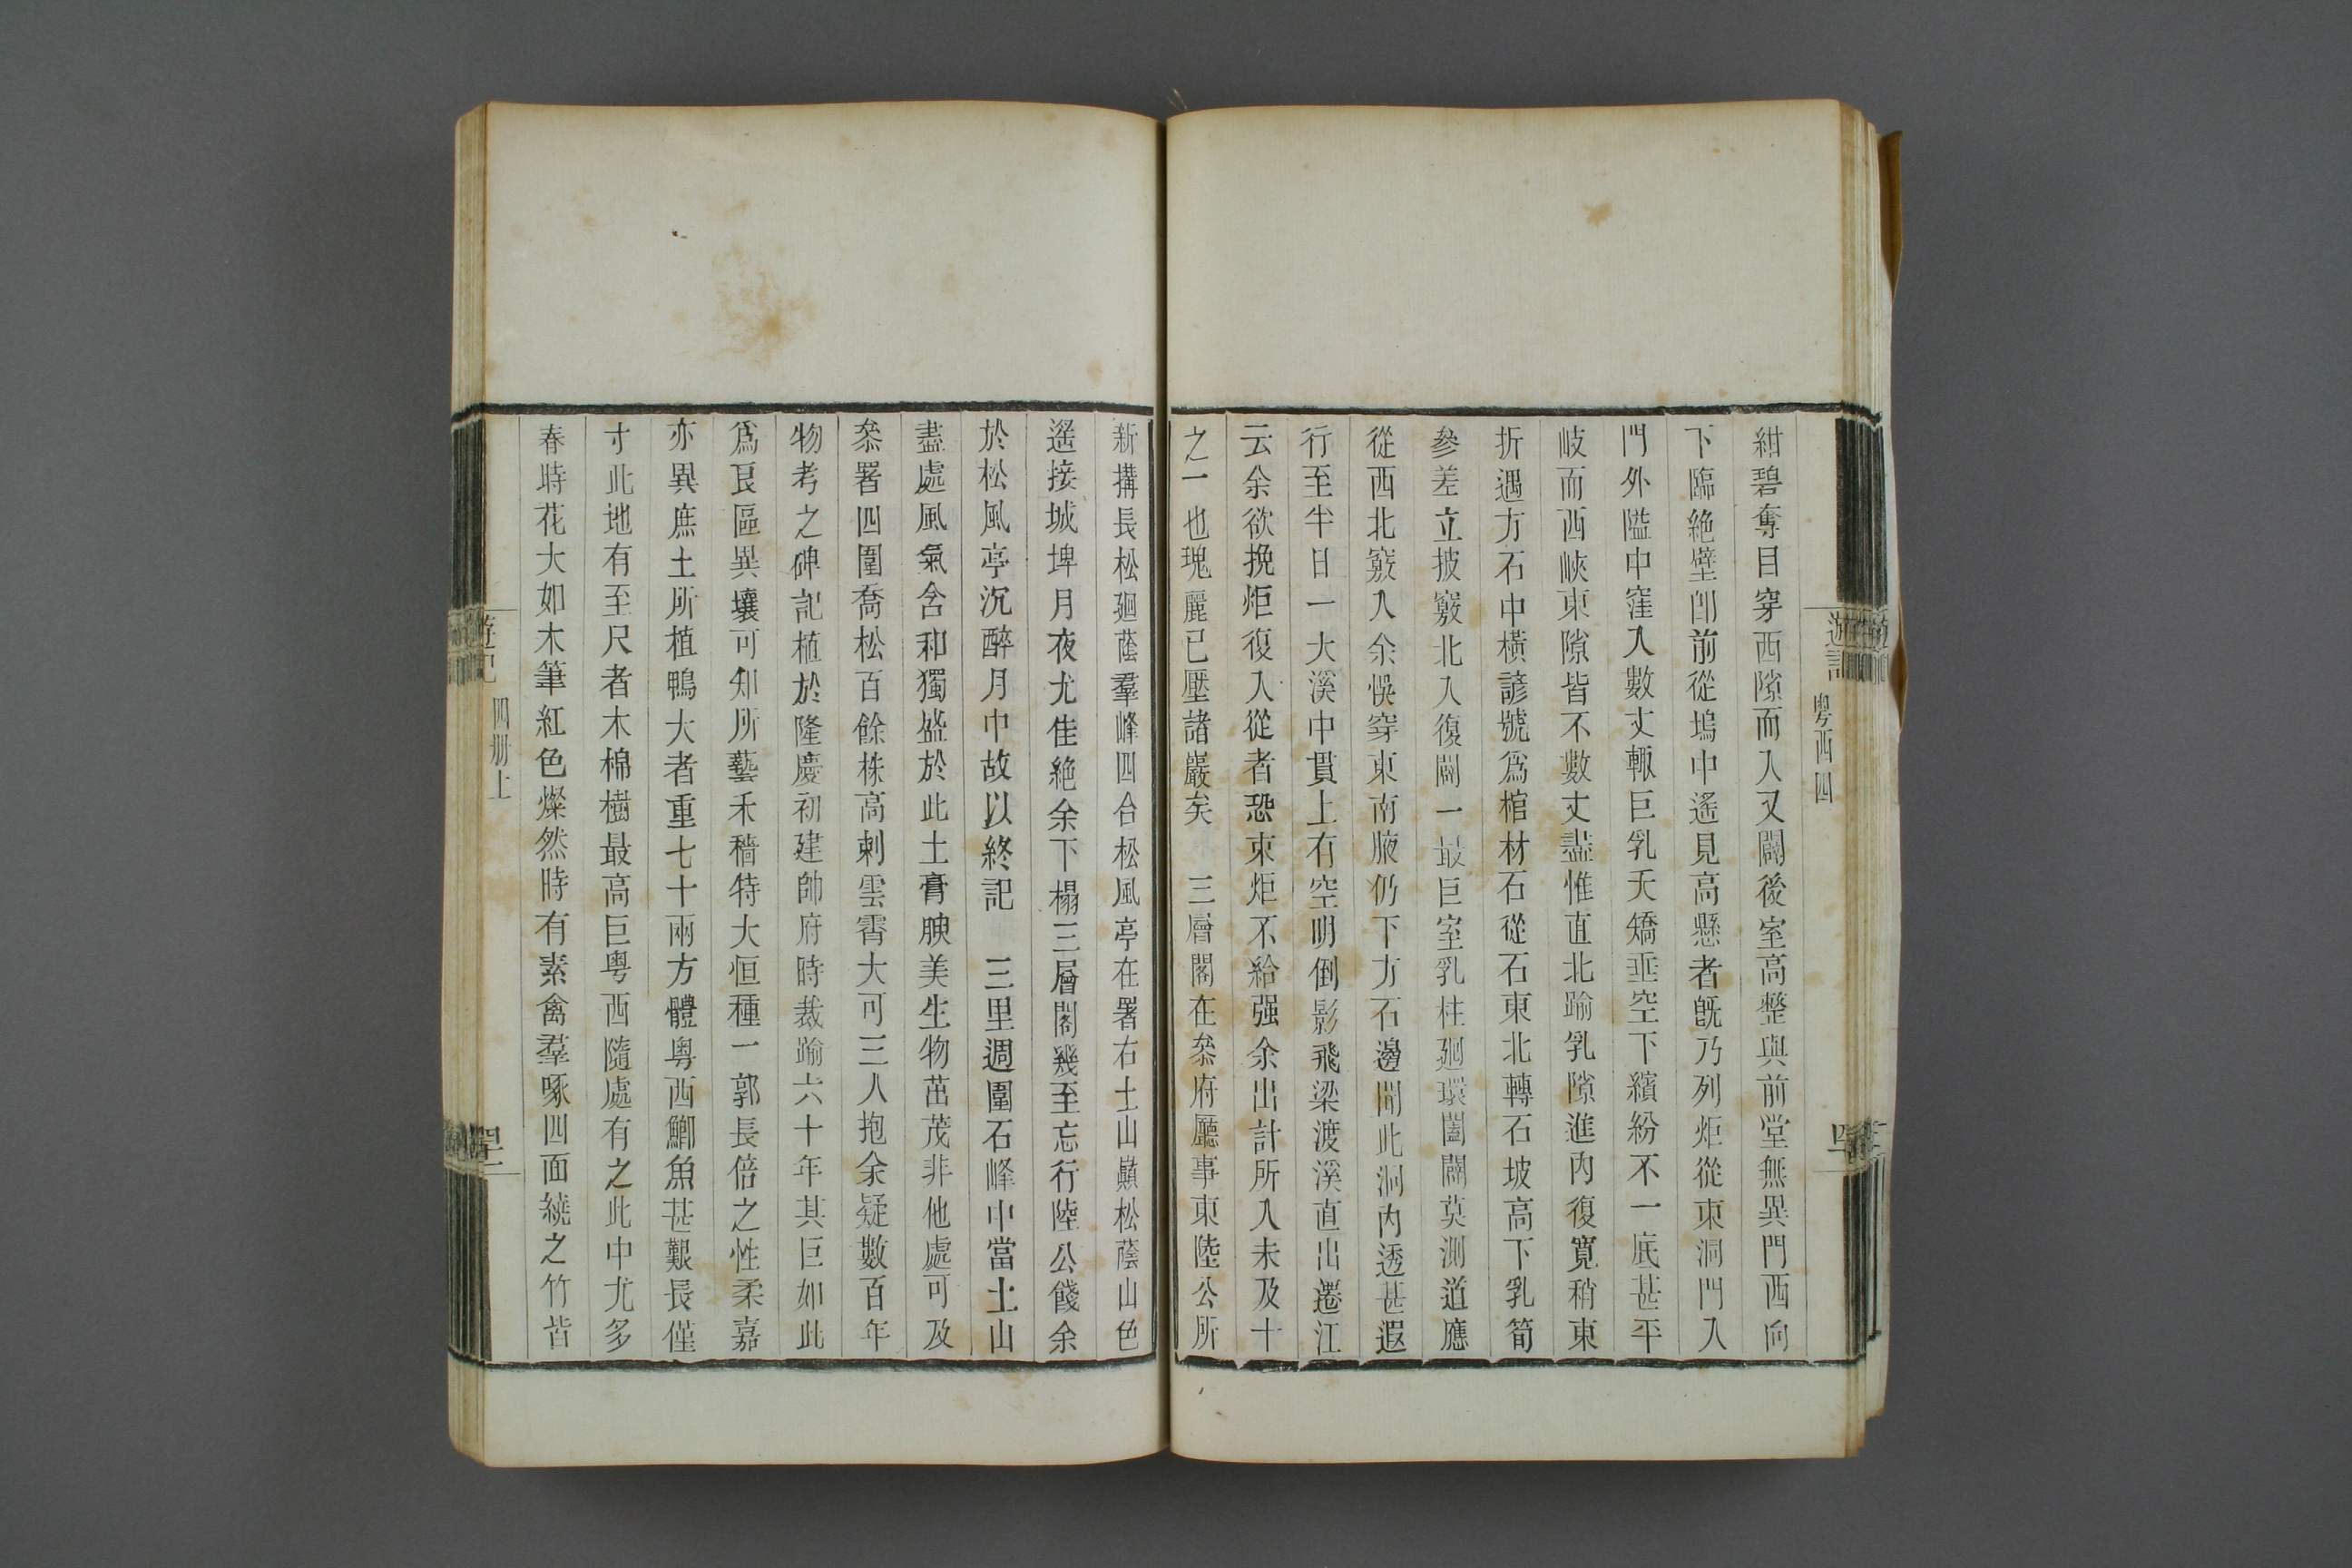 遊記
粵西四
紺碧奪目穿西隙而入又闢後室高整與前堂無異門西向
下臨絕壁卽前從塢中遙見高懸者旣乃列炬從東洞門入
門外隘中窪入數丈輒巨乳夭矯垂空下繽紛不一底甚平
岐而西峽東隙皆不數丈盡惟直北踰乳隙進內復寬稍東
折遇方石中橫諺號爲棺材石從石東北轉石坡高下乳筍
參差立披竅北入復闢一最巨室乳柱廻環闔闢莫測道應
從西北竅入余悞穿東南腋仍下方石邊聞此洞內透甚遐
行至半日一大溪中貫上有空明倒影飛梁渡溪直出遷江
云余欲挽炬復入從者恐束炬不給强余出計所入未及十
之一也瑰麗已壓諸巖矣　三層閣在叅府廳事東陸公所
新搆長松廻蔭羣峰四合松風亭在署右土山巔松蔭山色
遙接城埤月夜尤佳絕余下榻三層閣幾至忘行陸公餞余
於松風亭沉醉月中故以終記　三里週圍石峰中當土山
盡處風氣含和獨盛於此土膏腴美生物茁茂非他處可及
叅署四圍喬松百餘株高刺雲霄大可三人抱余疑數百年
物考之碑記植於隆慶初建帥府時裁踰六十年其巨如此
爲良區異壤可知所藝禾穡特大恒種一郭長倍之性柔嘉
亦異庶土所植鴨大者重七十兩方體粵西鯽魚甚艱長僅
寸此地有至尺者木棉樹最高巨粵西隨處有之此中尤多
春時花大如木筆紅色燦然時有素禽羣啄四面繞之竹皆
遊記
四册上